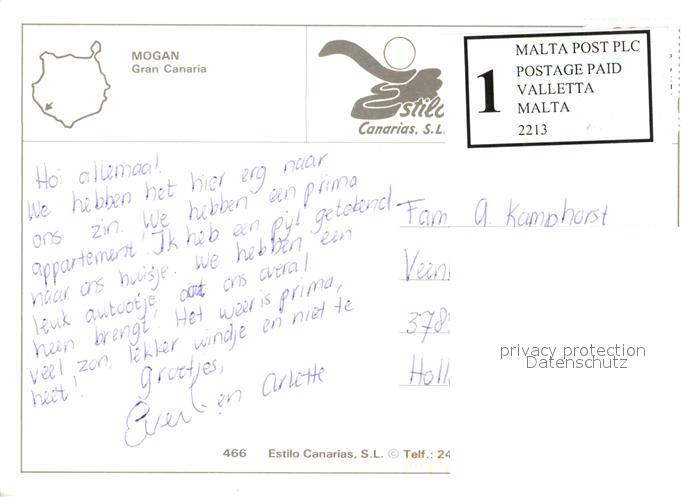 MOGAN
Gran Canaria
Estilo
Canarias, S.L.
1
MALTA POST PLC
POSTAGE PAID
VALLETTA
MALTA
2213
Hoi allemaal!
We hebben het hier erg naar
ons zin. We hebben een prima
appartement! Ik heb een pijl getekend
naar ons huisje. We hebben een
leuk autootje dat ons overal
heen brengt. Het weer is prima,
veel zon, lekker windje en niet te
heet!
Groetjes,
Evert en Arlette
Fam A. Kamphorst
Veen
378
Holl
privacy protection
Datenschutz
466 Estilo Canarias, S.L. © Telf.: 24